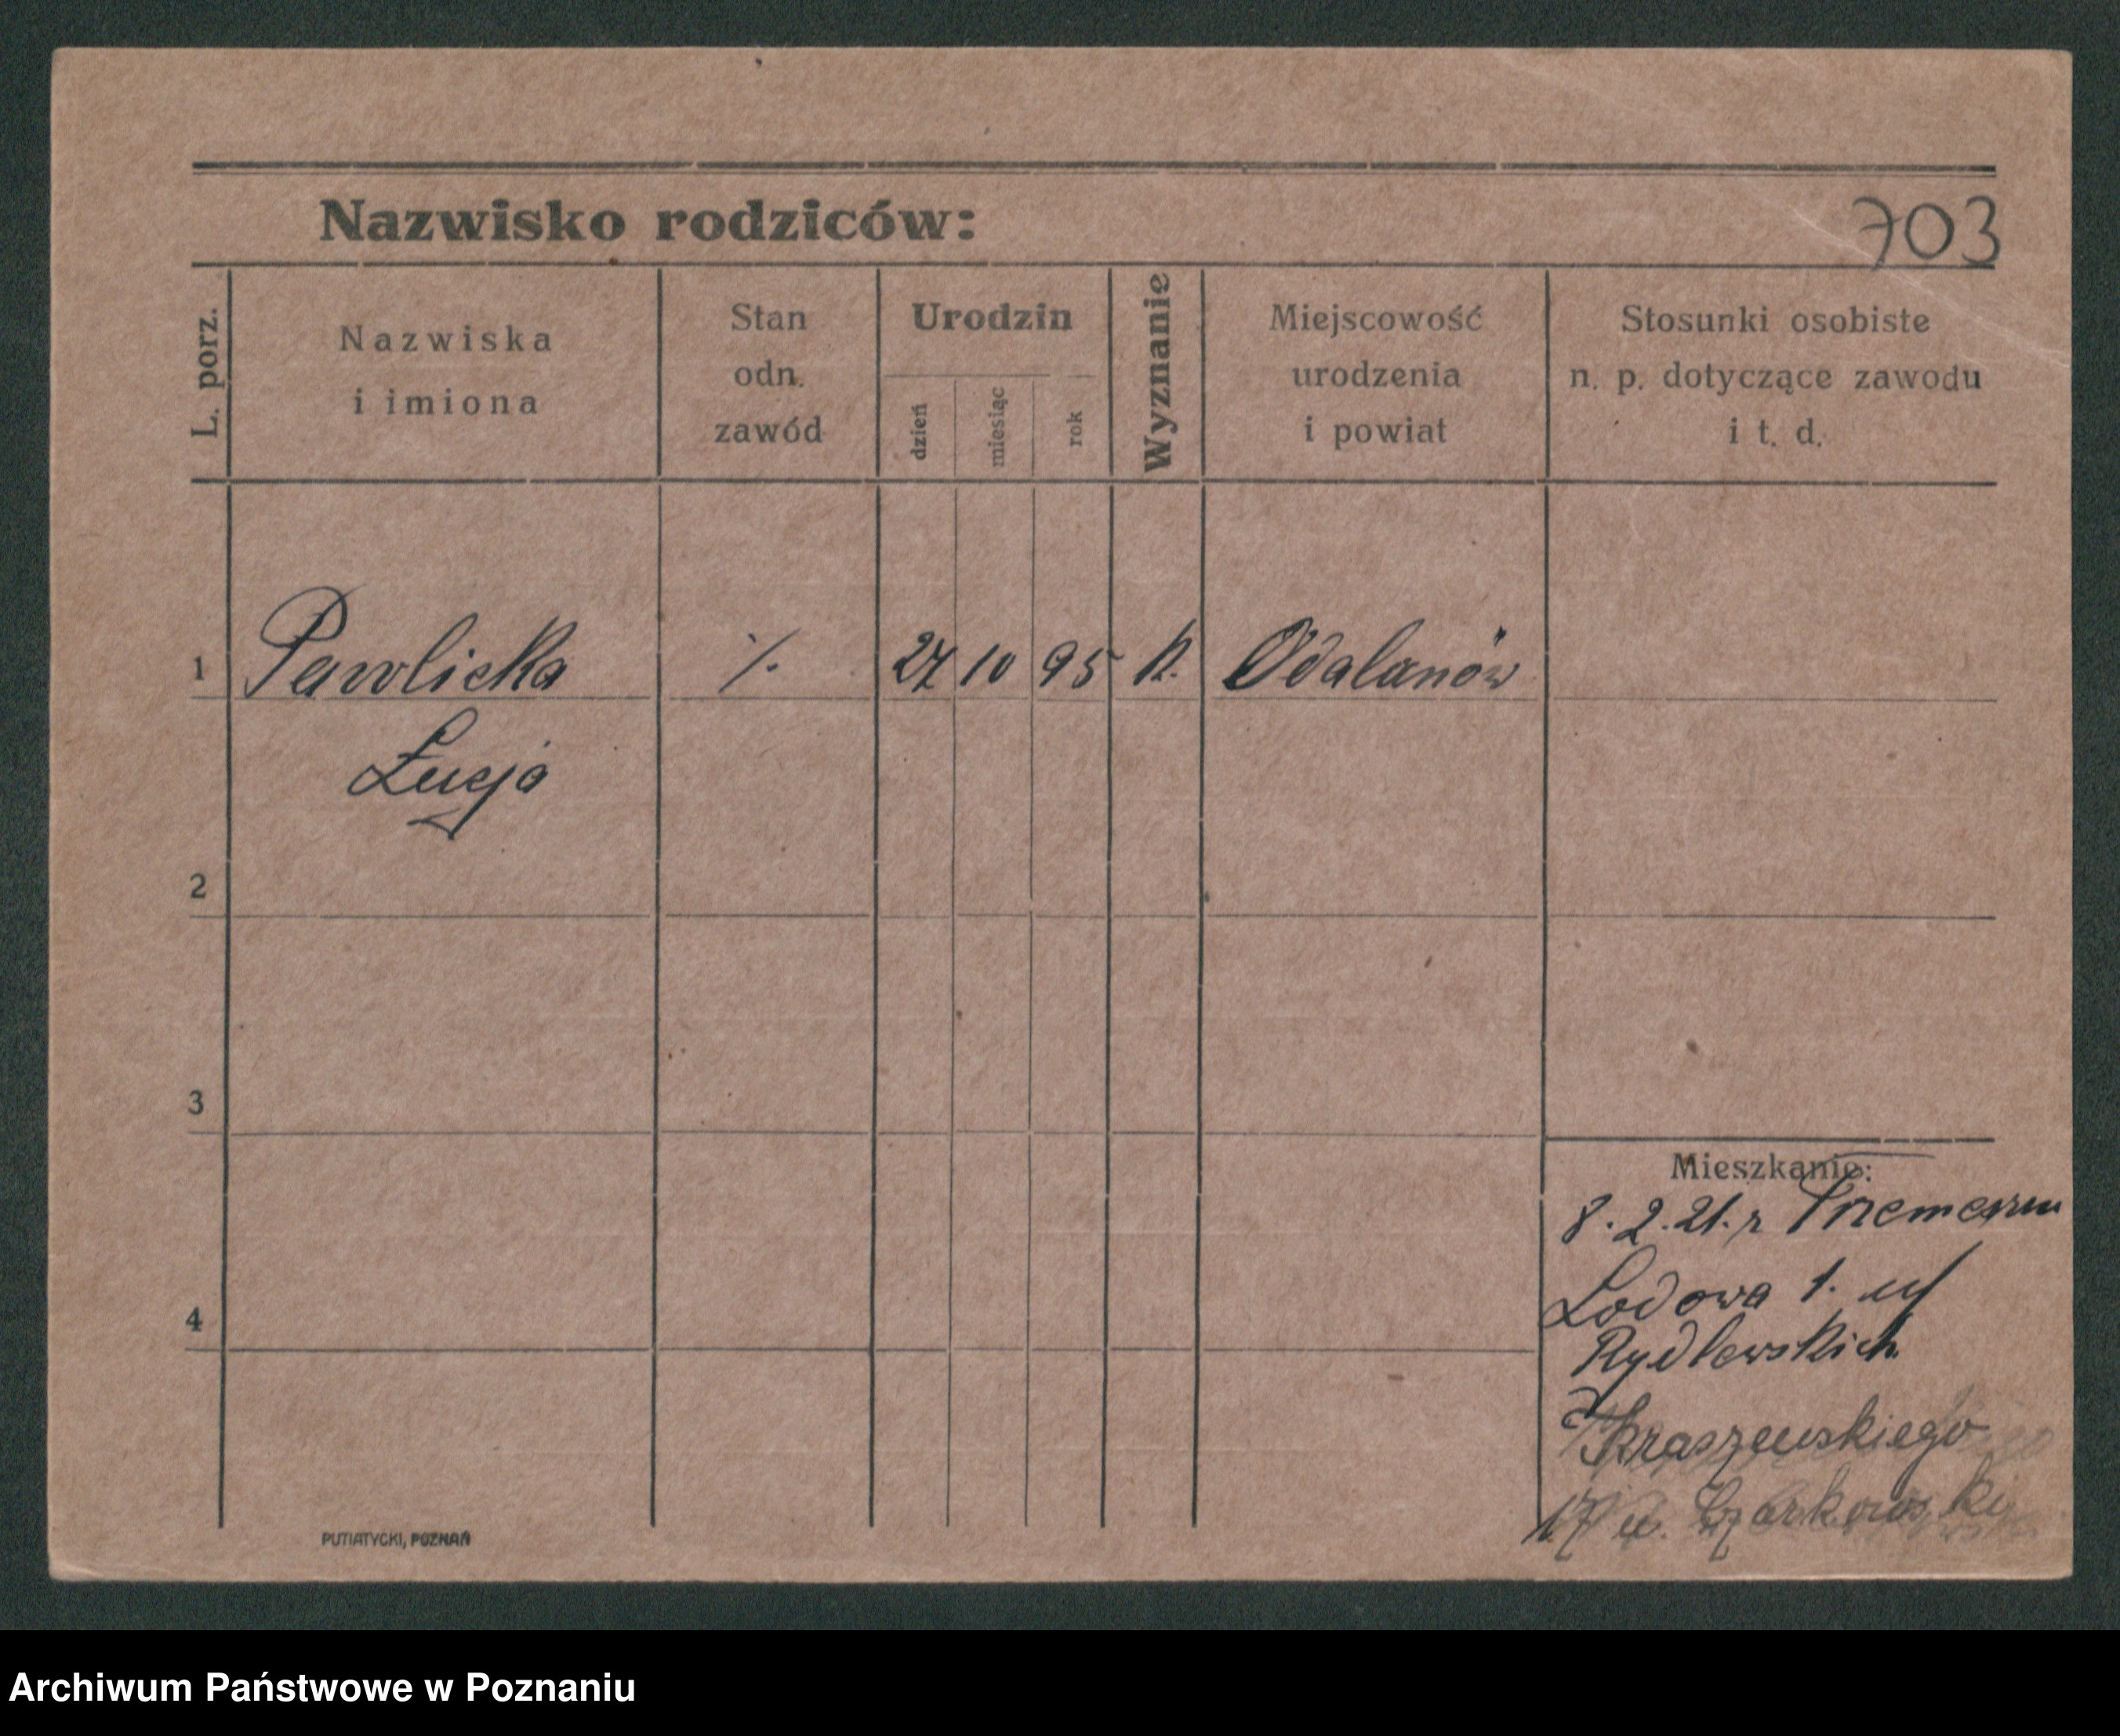 Nazwisko rodziców:
703
L. porz.
Nazwiska
i imiona
Stan
odn.
zawód
Urodzin
dzień
miesiąc
rok
Wyznanie
Miejscowość
urodzenia
i powiat
Stosunki osobiste
n. p. dotyczące zawodu
i t. d.
1 Pawlicka ·/. 27 10 95 k. Odalanów
Łucja
2
3
4
Mieszkanie:
8. 2. 21. z
Lodowa 1. u/
Rydlewskich
Kraszewskiego
17 u. Czarkowski
PUTIATYCKI, POZNAŃ
Archiwum Państwowe w Poznaniu